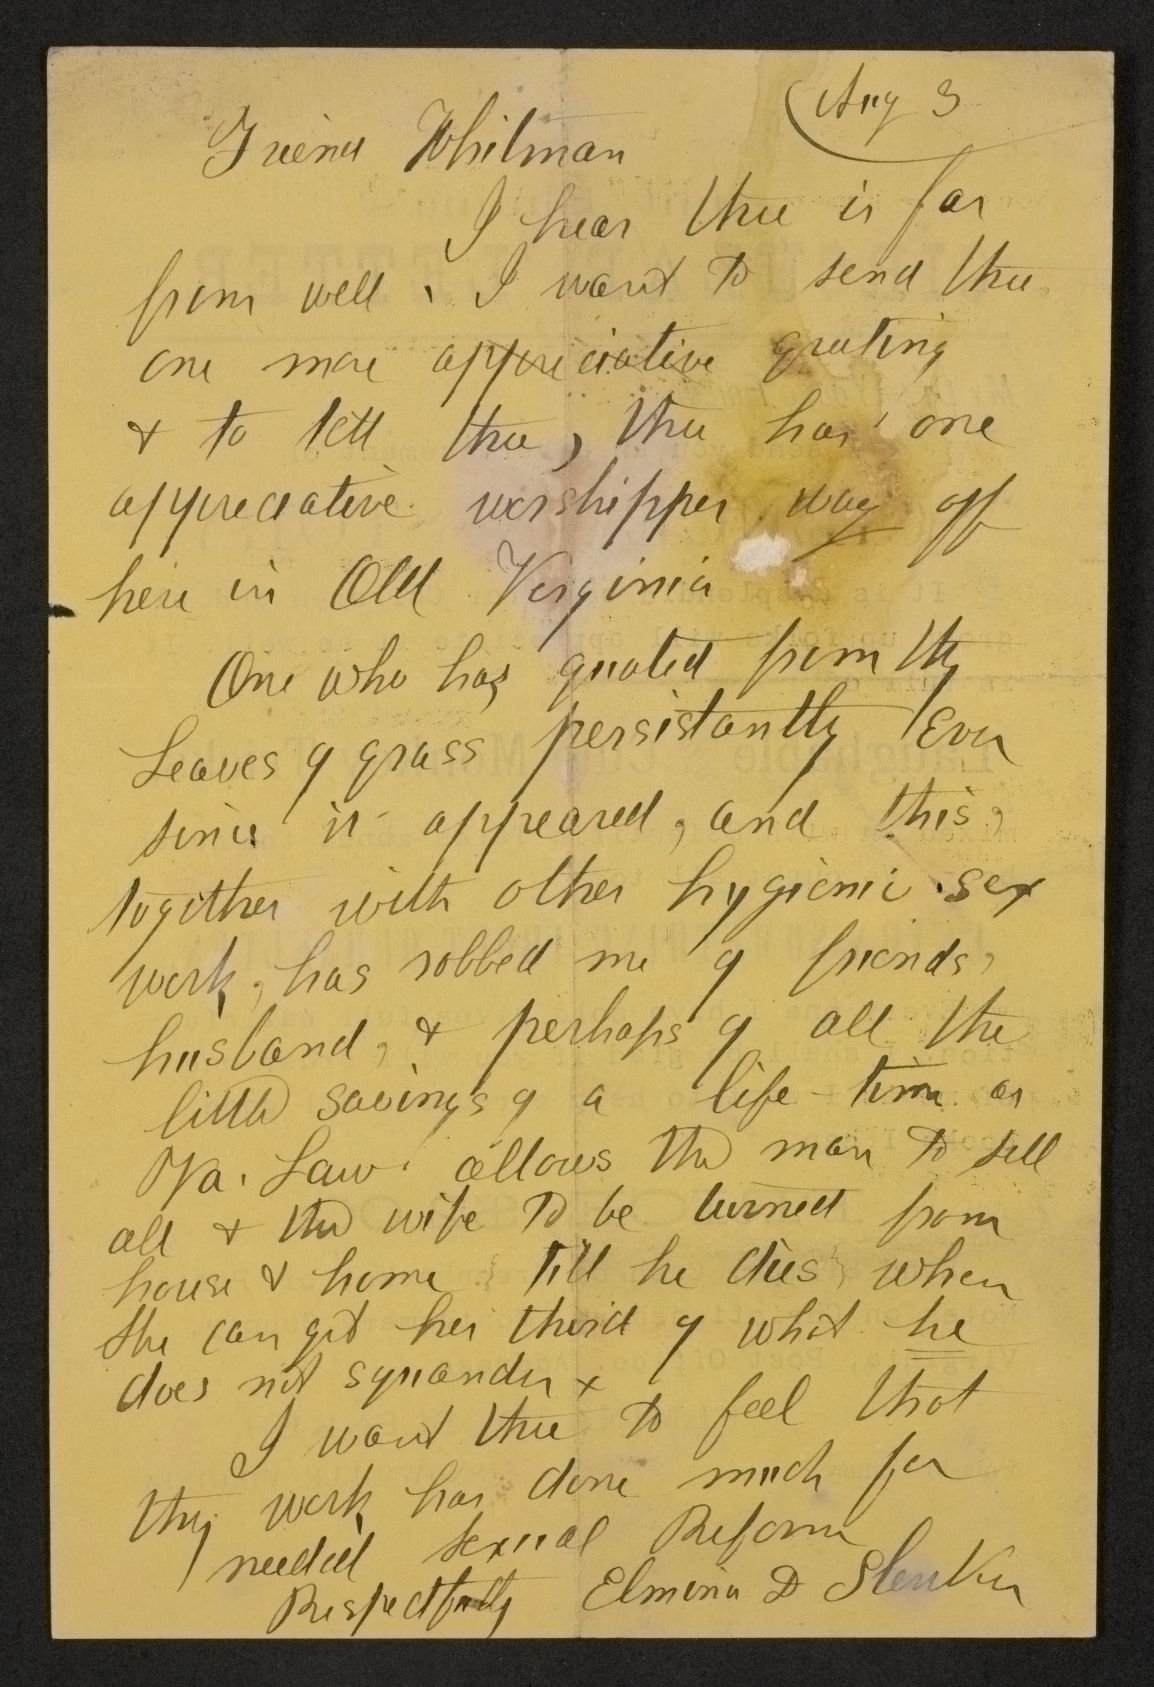 Aug 3
Friend Whitman
I hear thee is far
from well. I want to send thee
one more appreciative greeting
& to tell thee, thee has one
appreciative worshipper way off
here in Old Virginia
One who has quoted from thy
Leaves of grass persistantly Ever
since it appeared, and this,
together with other hygienic sex
work, has robbed me of friends,
husband, & perhaps of all the
little savings of a life-time as
Va. Law allows the man to sell
all & the wife to be turned from
house & home {till he dies} when
she can get her third of what he
does not squander x
I want thee to feel that
thy work has done much for
needed sexual Reform
Respectfully Elmina D Slenker